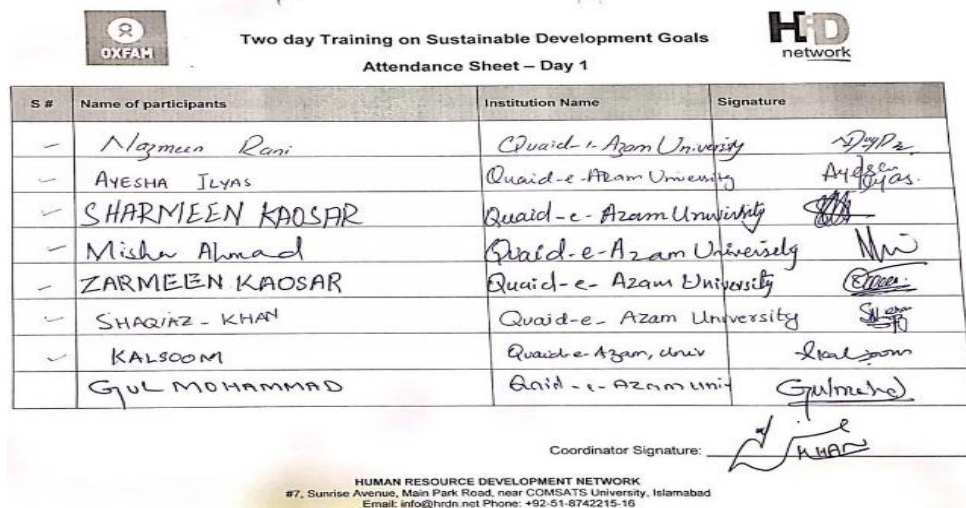 OXFAM
HiD
network
Two day Training on Sustainable Development Goals
Attendance Sheet – Day 1
S # Name of participants Institution Name Signature
Nazmeen Rani Quaid-e-Azam University
AYESHA ILYAS Quaid-e-Azam University Ayesha Ilyas.
SHARMEEN KAOSAR Quaid-e-Azam University
Misha Ahmad Quaid-e-Azam University
ZARMEEN KAOSAR Quaid-e-Azam University
SHAQIAZ-KHAN Quaid-e-Azam University
KALSOOM Quaid-e-Azam, Univ Kalsoom
GUL MOHAMMAD Quid-e-Azam univ Gulmohd
Coordinator Signature: KHAN
HUMAN RESOURCE DEVELOPMENT NETWORK
#7, Sunrise Avenue, Main Park Road, near COMSATS University, Islamabad
Email: info@hrdn.net Phone: +92-51-8742215-16